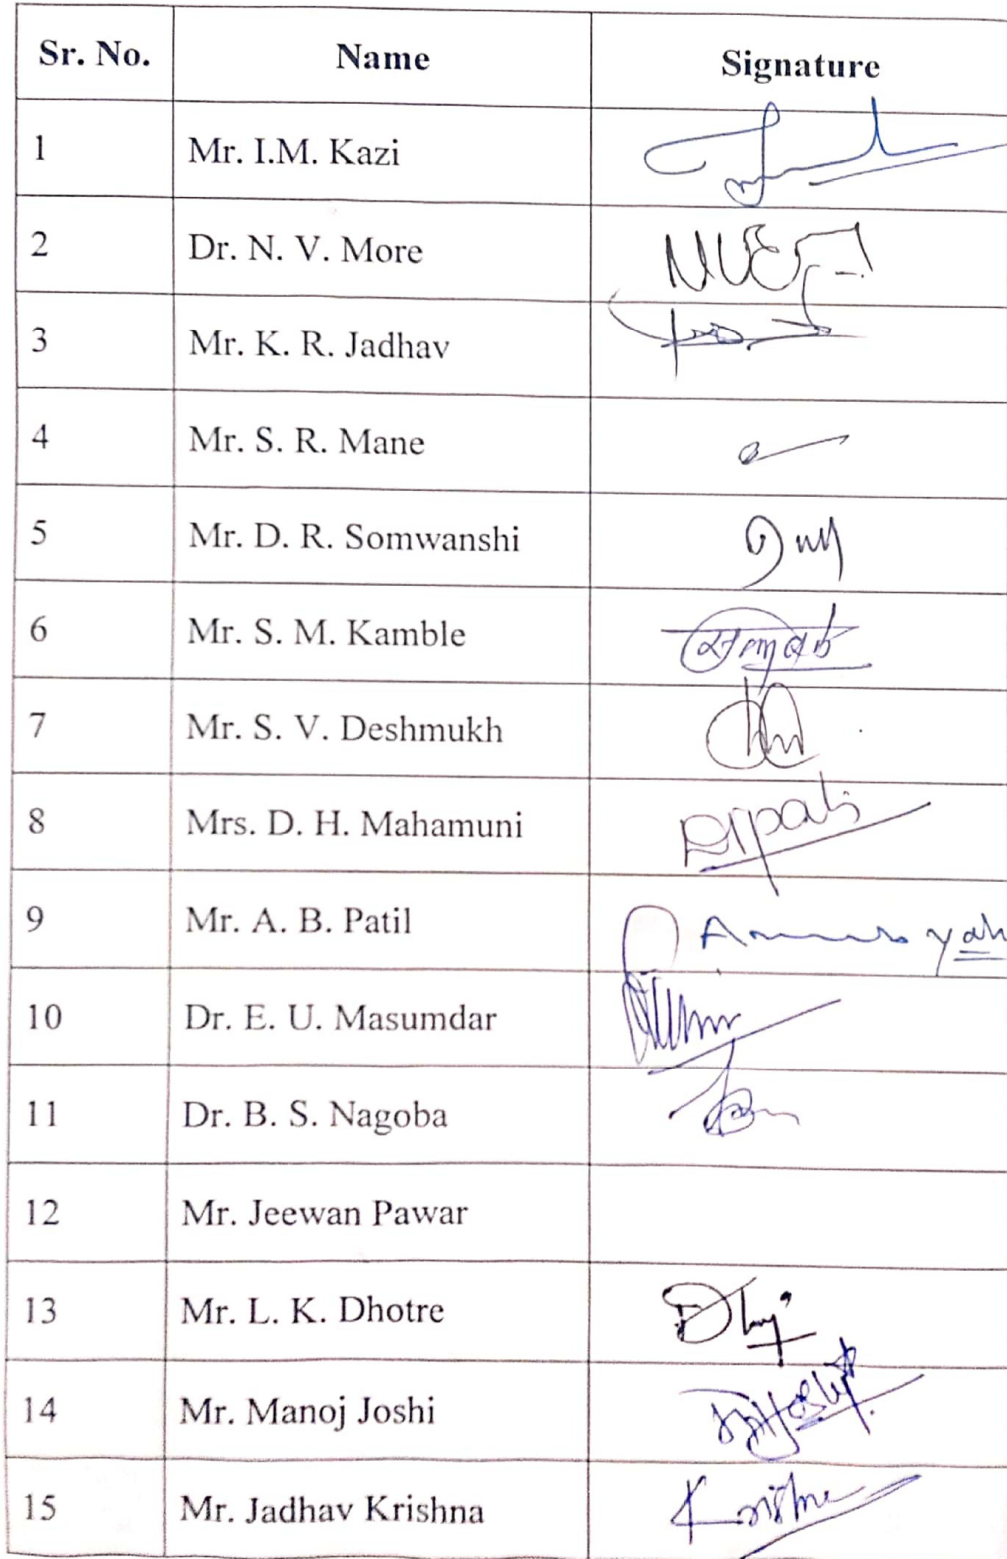 Sr. No. Name Signature
1 Mr. I.M. Kazi
2 Dr. N. V. More
3 Mr. K. R. Jadhav
4 Mr. S. R. Mane
5 Mr. D. R. Somwanshi
6 Mr. S. M. Kamble
7 Mr. S. V. Deshmukh
8 Mrs. D. H. Mahamuni
9 Mr. A. B. Patil
10 Dr. E. U. Masumdar
11 Dr. B. S. Nagoba
12 Mr. Jeewan Pawar
13 Mr. L. K. Dhotre
14 Mr. Manoj Joshi
15 Mr. Jadhav Krishna Krishna